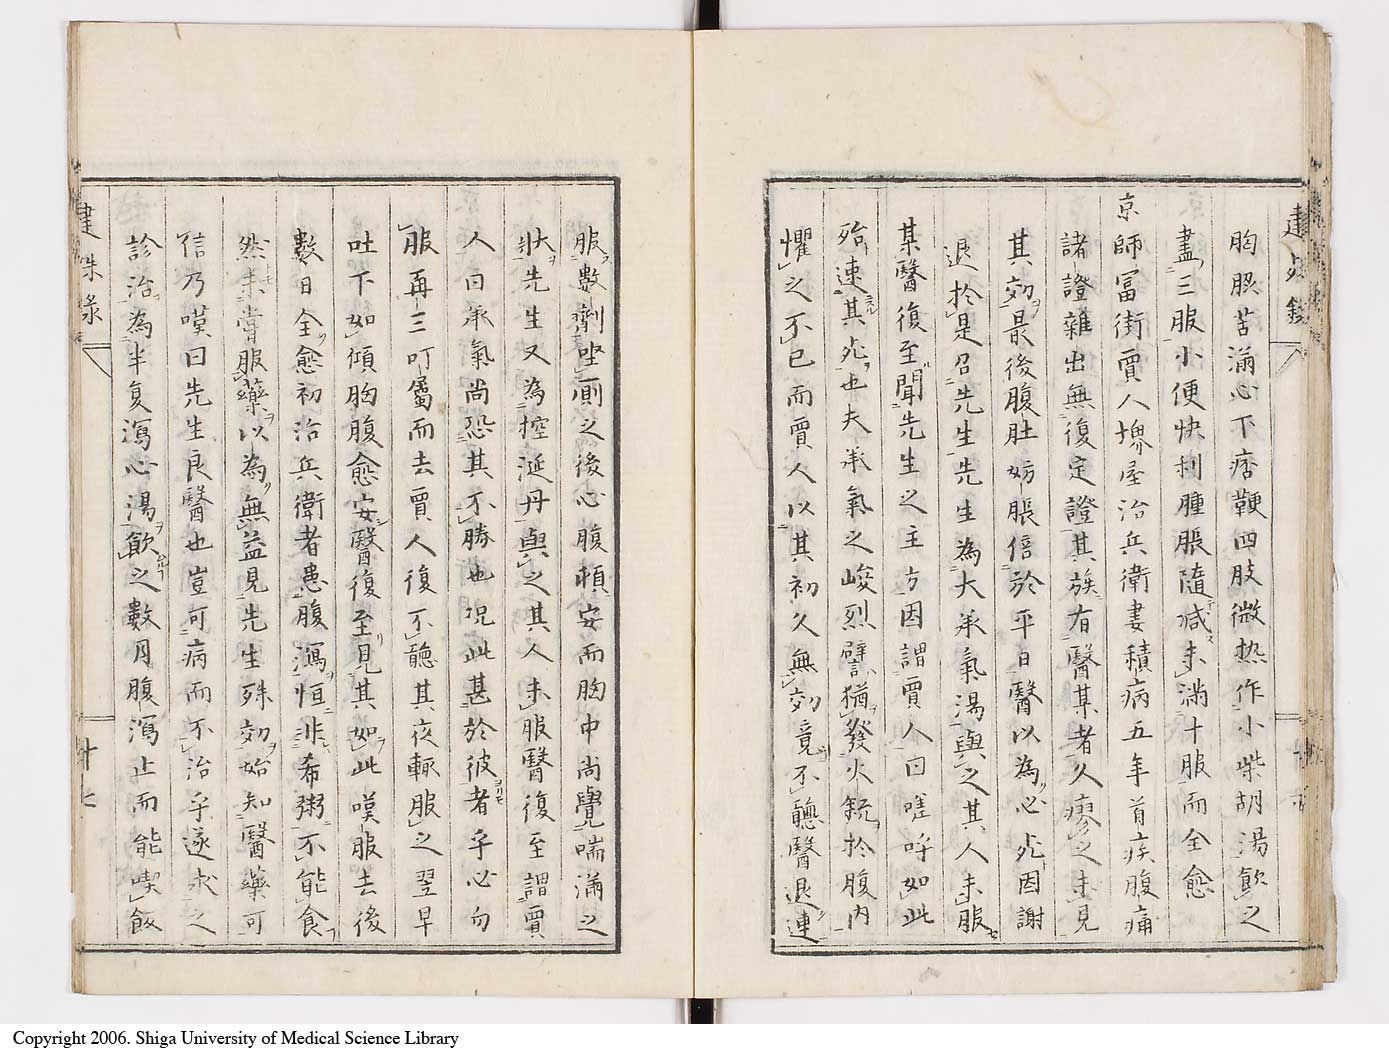 胸脇苦滿心下痞鞕四肢微热作小柴胡湯飮之
盡三服小便快利腫脹隨减未滿十服而全愈
京師冨街賈人堺屋治兵衛妻積病五年首疾腹痛
諸證雜出無復定證其族有醫某者久療之未見
其効最後腹肚妨脹倍於平日醫以為必死因謝
退於是召先生先生為大承氣湯與之其人未服
某醫復至聞先生之主方因謂賈人曰嗟呼如此
殆連其死也夫承氣之峻烈譬猶發火銃於腹内
懼之不已而賈人以其初久無効竟不聽醫退連
服數劑坐厠之後心腹頓安而胸中尚覺喘滿之
狀先生又為控涎丹與之其人未服醫復至謂賈
人曰承氣尚恐其不勝也况此甚於彼者乎必勿
服再三叮屬而去賈人復不聽其夜輙服之翌早
吐下如傾胸腹愈安醫復至見其如此嘆服去後
數日全愈初治兵衛者患腹瀉恒非希粥不能食
然未嘗服藥以為無益見先生殊効始知醫藥可
信乃嘆曰先生良醫也豈可病而不治乎遂求之
診治為半夏瀉心湯飮之數月腹瀉止而能喫飯
建殊録
十七
Copyright 2006. Shiga University of Medical Science Library